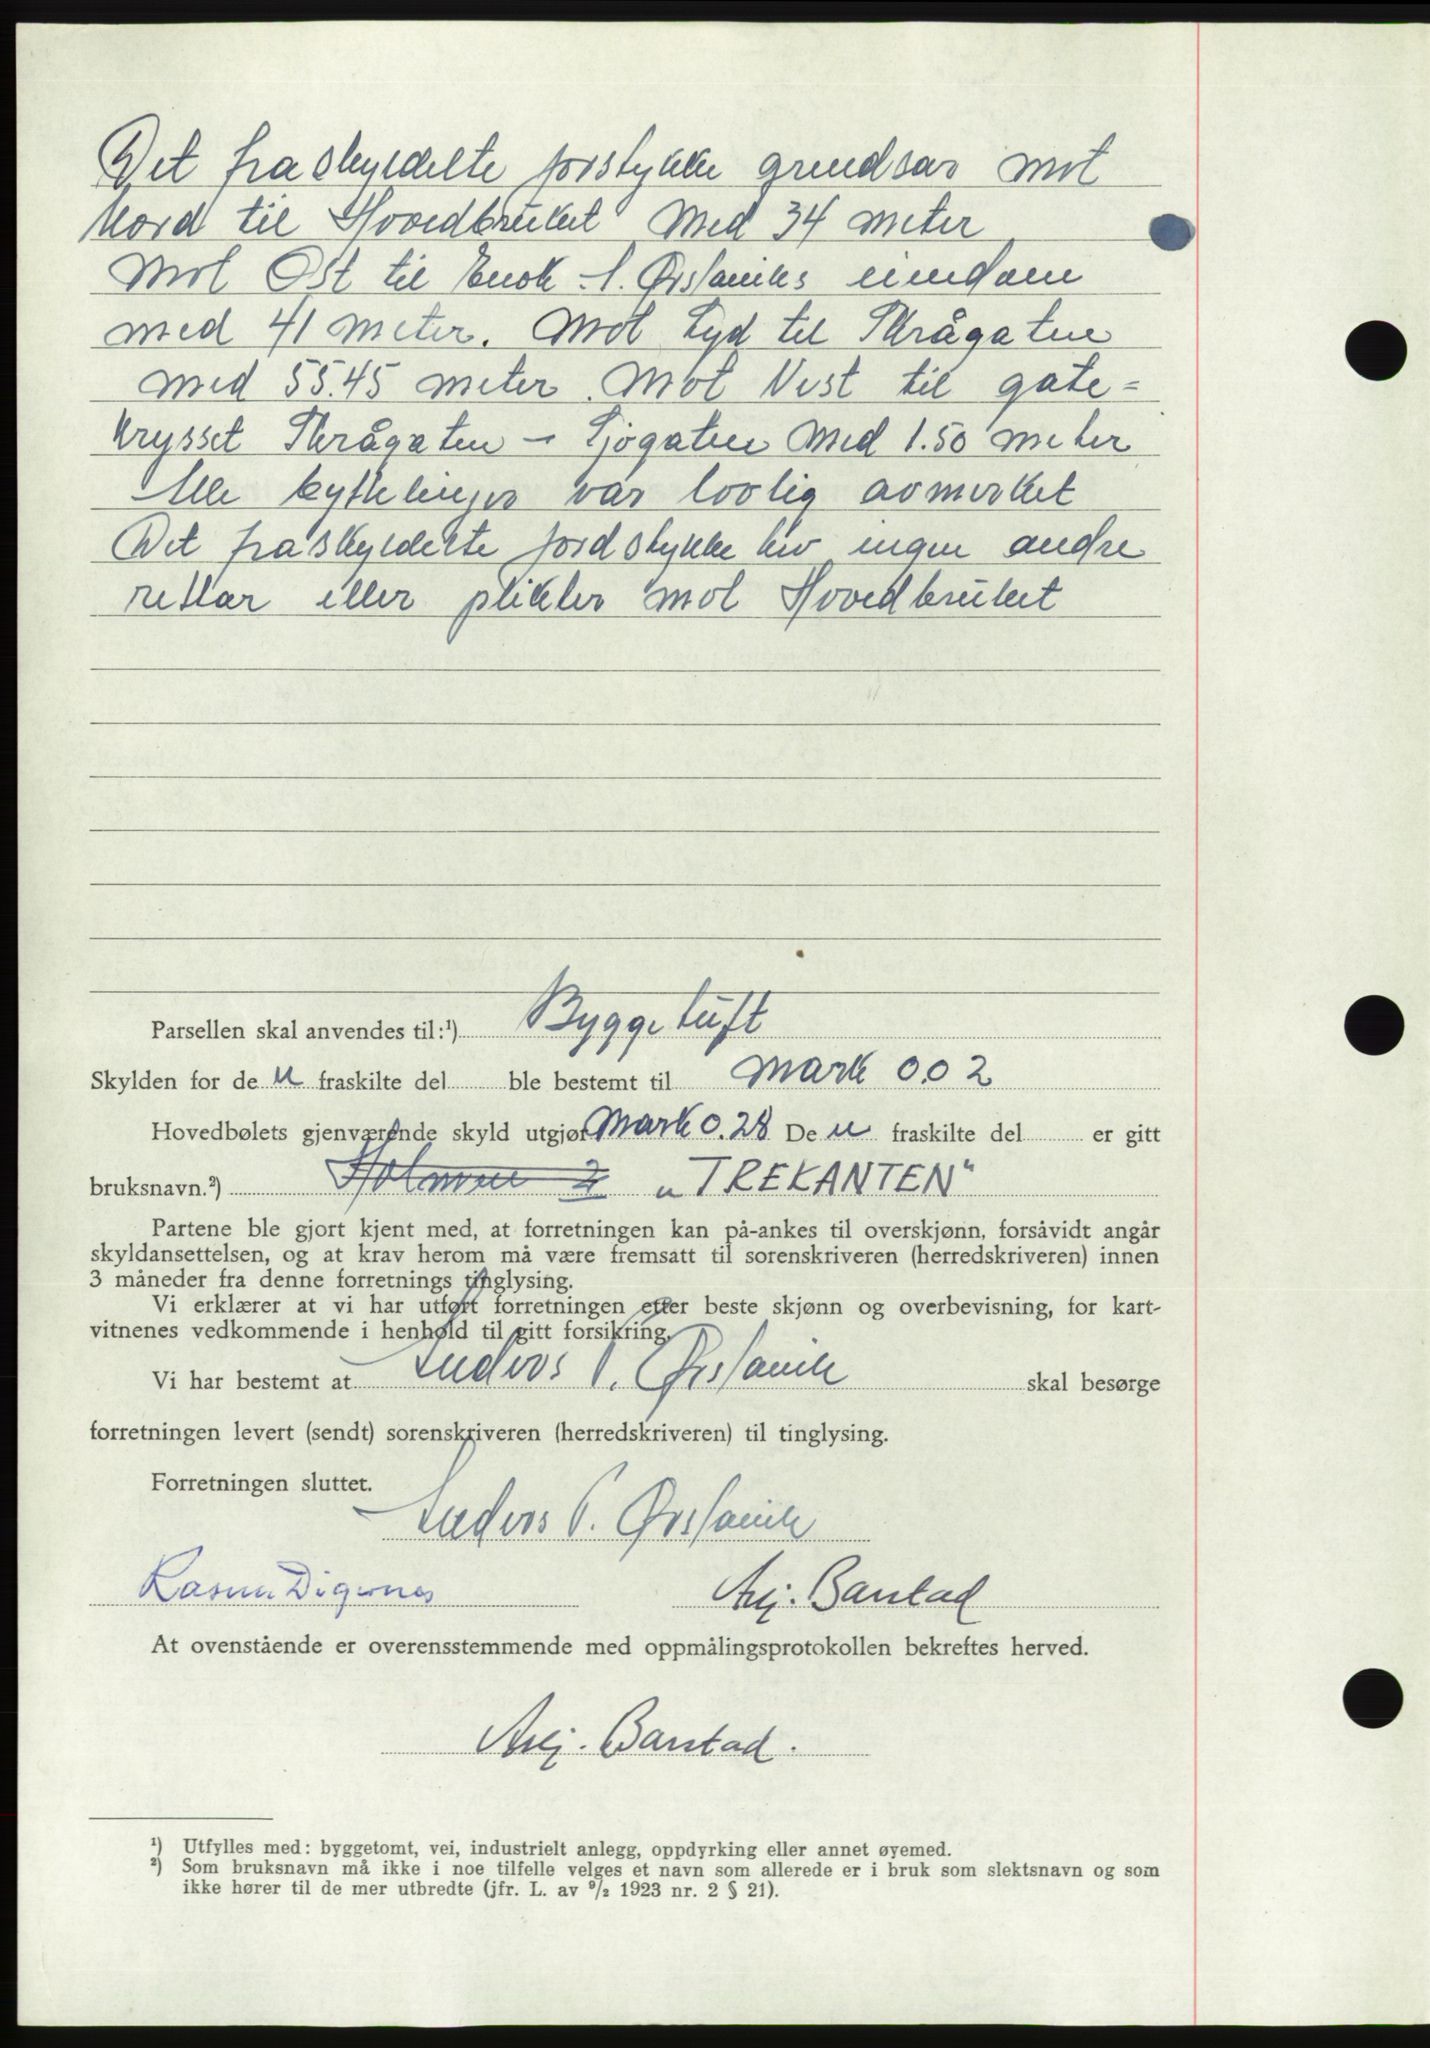 Det fraskyldelte jorstykke grendsar mot
Nord til Hovedbruket Med 34 meter
Mot Ost til Enok A. Ørstaviks eiendom
med 41 meter. Mot Syd til Skrågaten
med 55.45 meter. Mot Vest til gate=
krysset Skrågaten - Sjøgaten Med 1.50 meter
Alle byttelinier var lovlig avmerket
Det fraskyldelte jordstykke hev ingen andre
rettar eller plikter mot Hovedbruket
Parsellen skal anvendes til:¹) Byggetuft
Skylden for de n fraskilte del ble bestemt til mark 0.02
Hovedbølets gjenværende skyld utgjør mark 0.28 De n fraskilte del er gitt
bruksnavn.²) Holmen 2 „TREKANTEN"
Partene ble gjort kjent med, at forretningen kan på-ankes til overskjønn, forsåvidt angår
skyldansettelsen, og at krav herom må være fremsatt til sorenskriveren (herredskriveren) innen
3 måneder fra denne forretnings tinglysing.
Vi erklærer at vi har utført forretningen etter beste skjønn og overbevisning, for kart-
vitnenes vedkommende i henhold til gitt forsikring.
Vi har bestemt at Anders P. Ørstavik skal besørge
forretningen levert (sendt) sorenskriveren (herredskriveren) til tinglysing.
Forretningen sluttet.
Anders P. Ørstavik
Rasmus Digernes Asj. Barstad
At ovenstående er overensstemmende med oppmålingsprotokollen bekreftes herved.
Asj. Barstad.
¹) Utfylles med: byggetomt, vei, industrielt anlegg, oppdyrking eller annet øyemed.
²) Som bruksnavn må ikke i noe tilfelle velges et navn som allerede er i bruk som slektsnavn og som
ikke hører til de mer utbredte (jfr. L. av ⁹/₂ 1923 nr. 2 § 21).